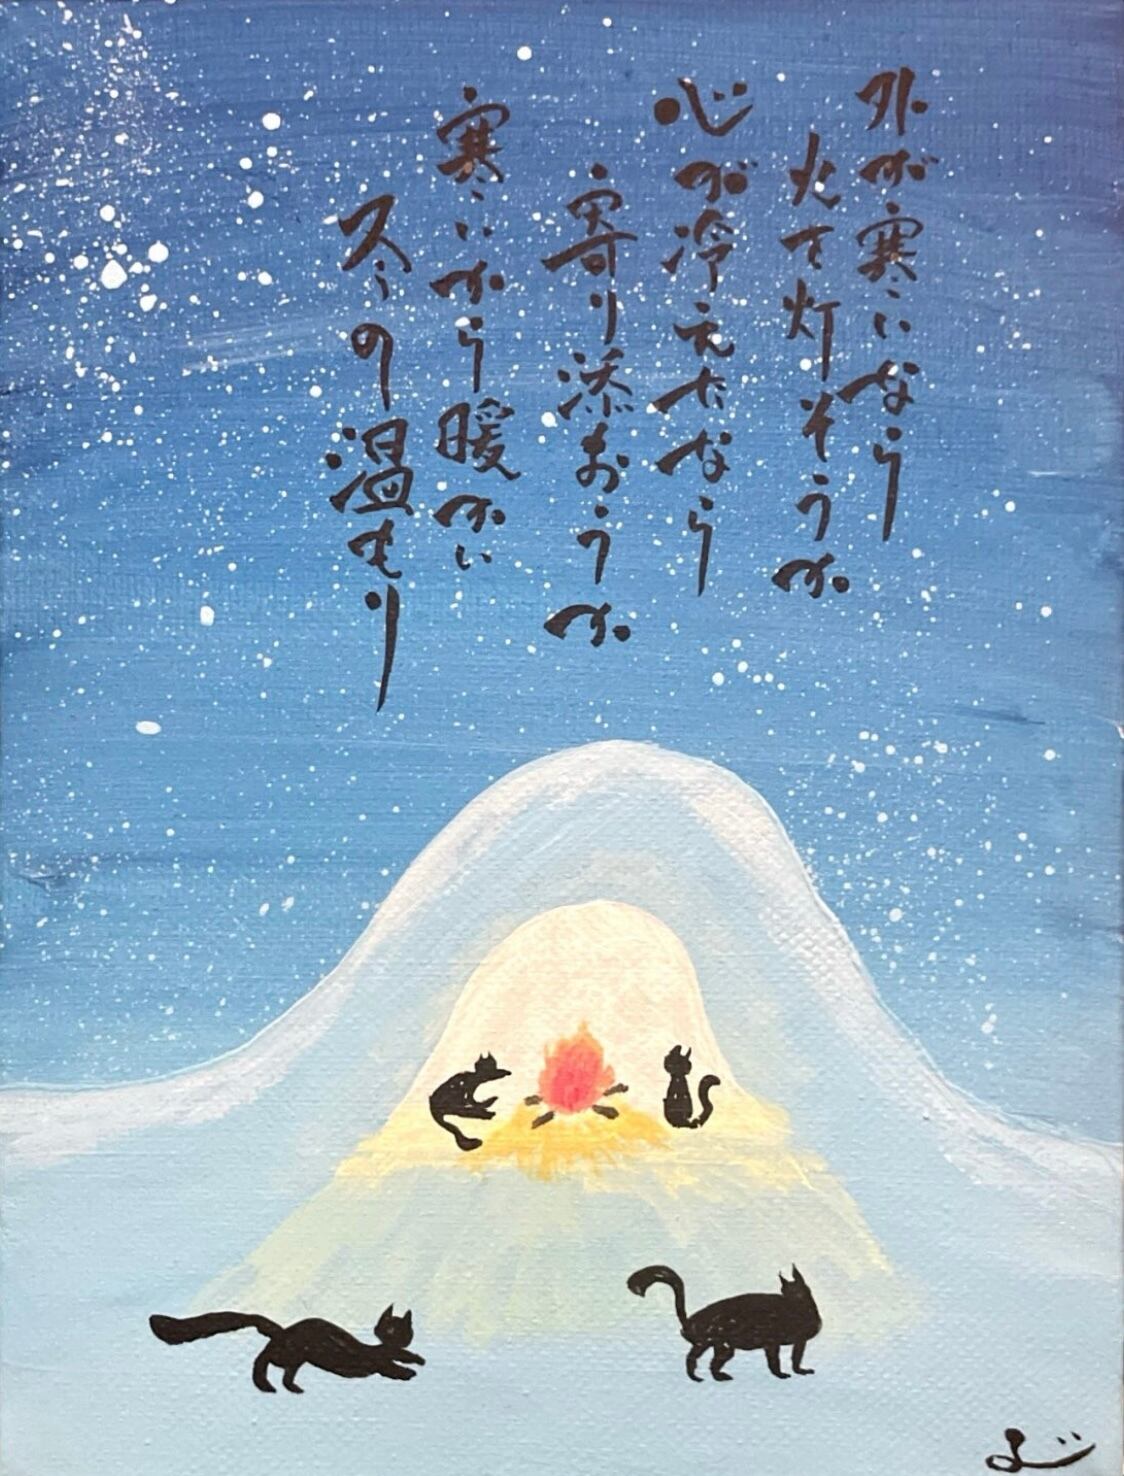 外が寒いなら
火で灯そうか
心が冷えたなら
寄り添おうか
寒いから暖かい
冬の温もり